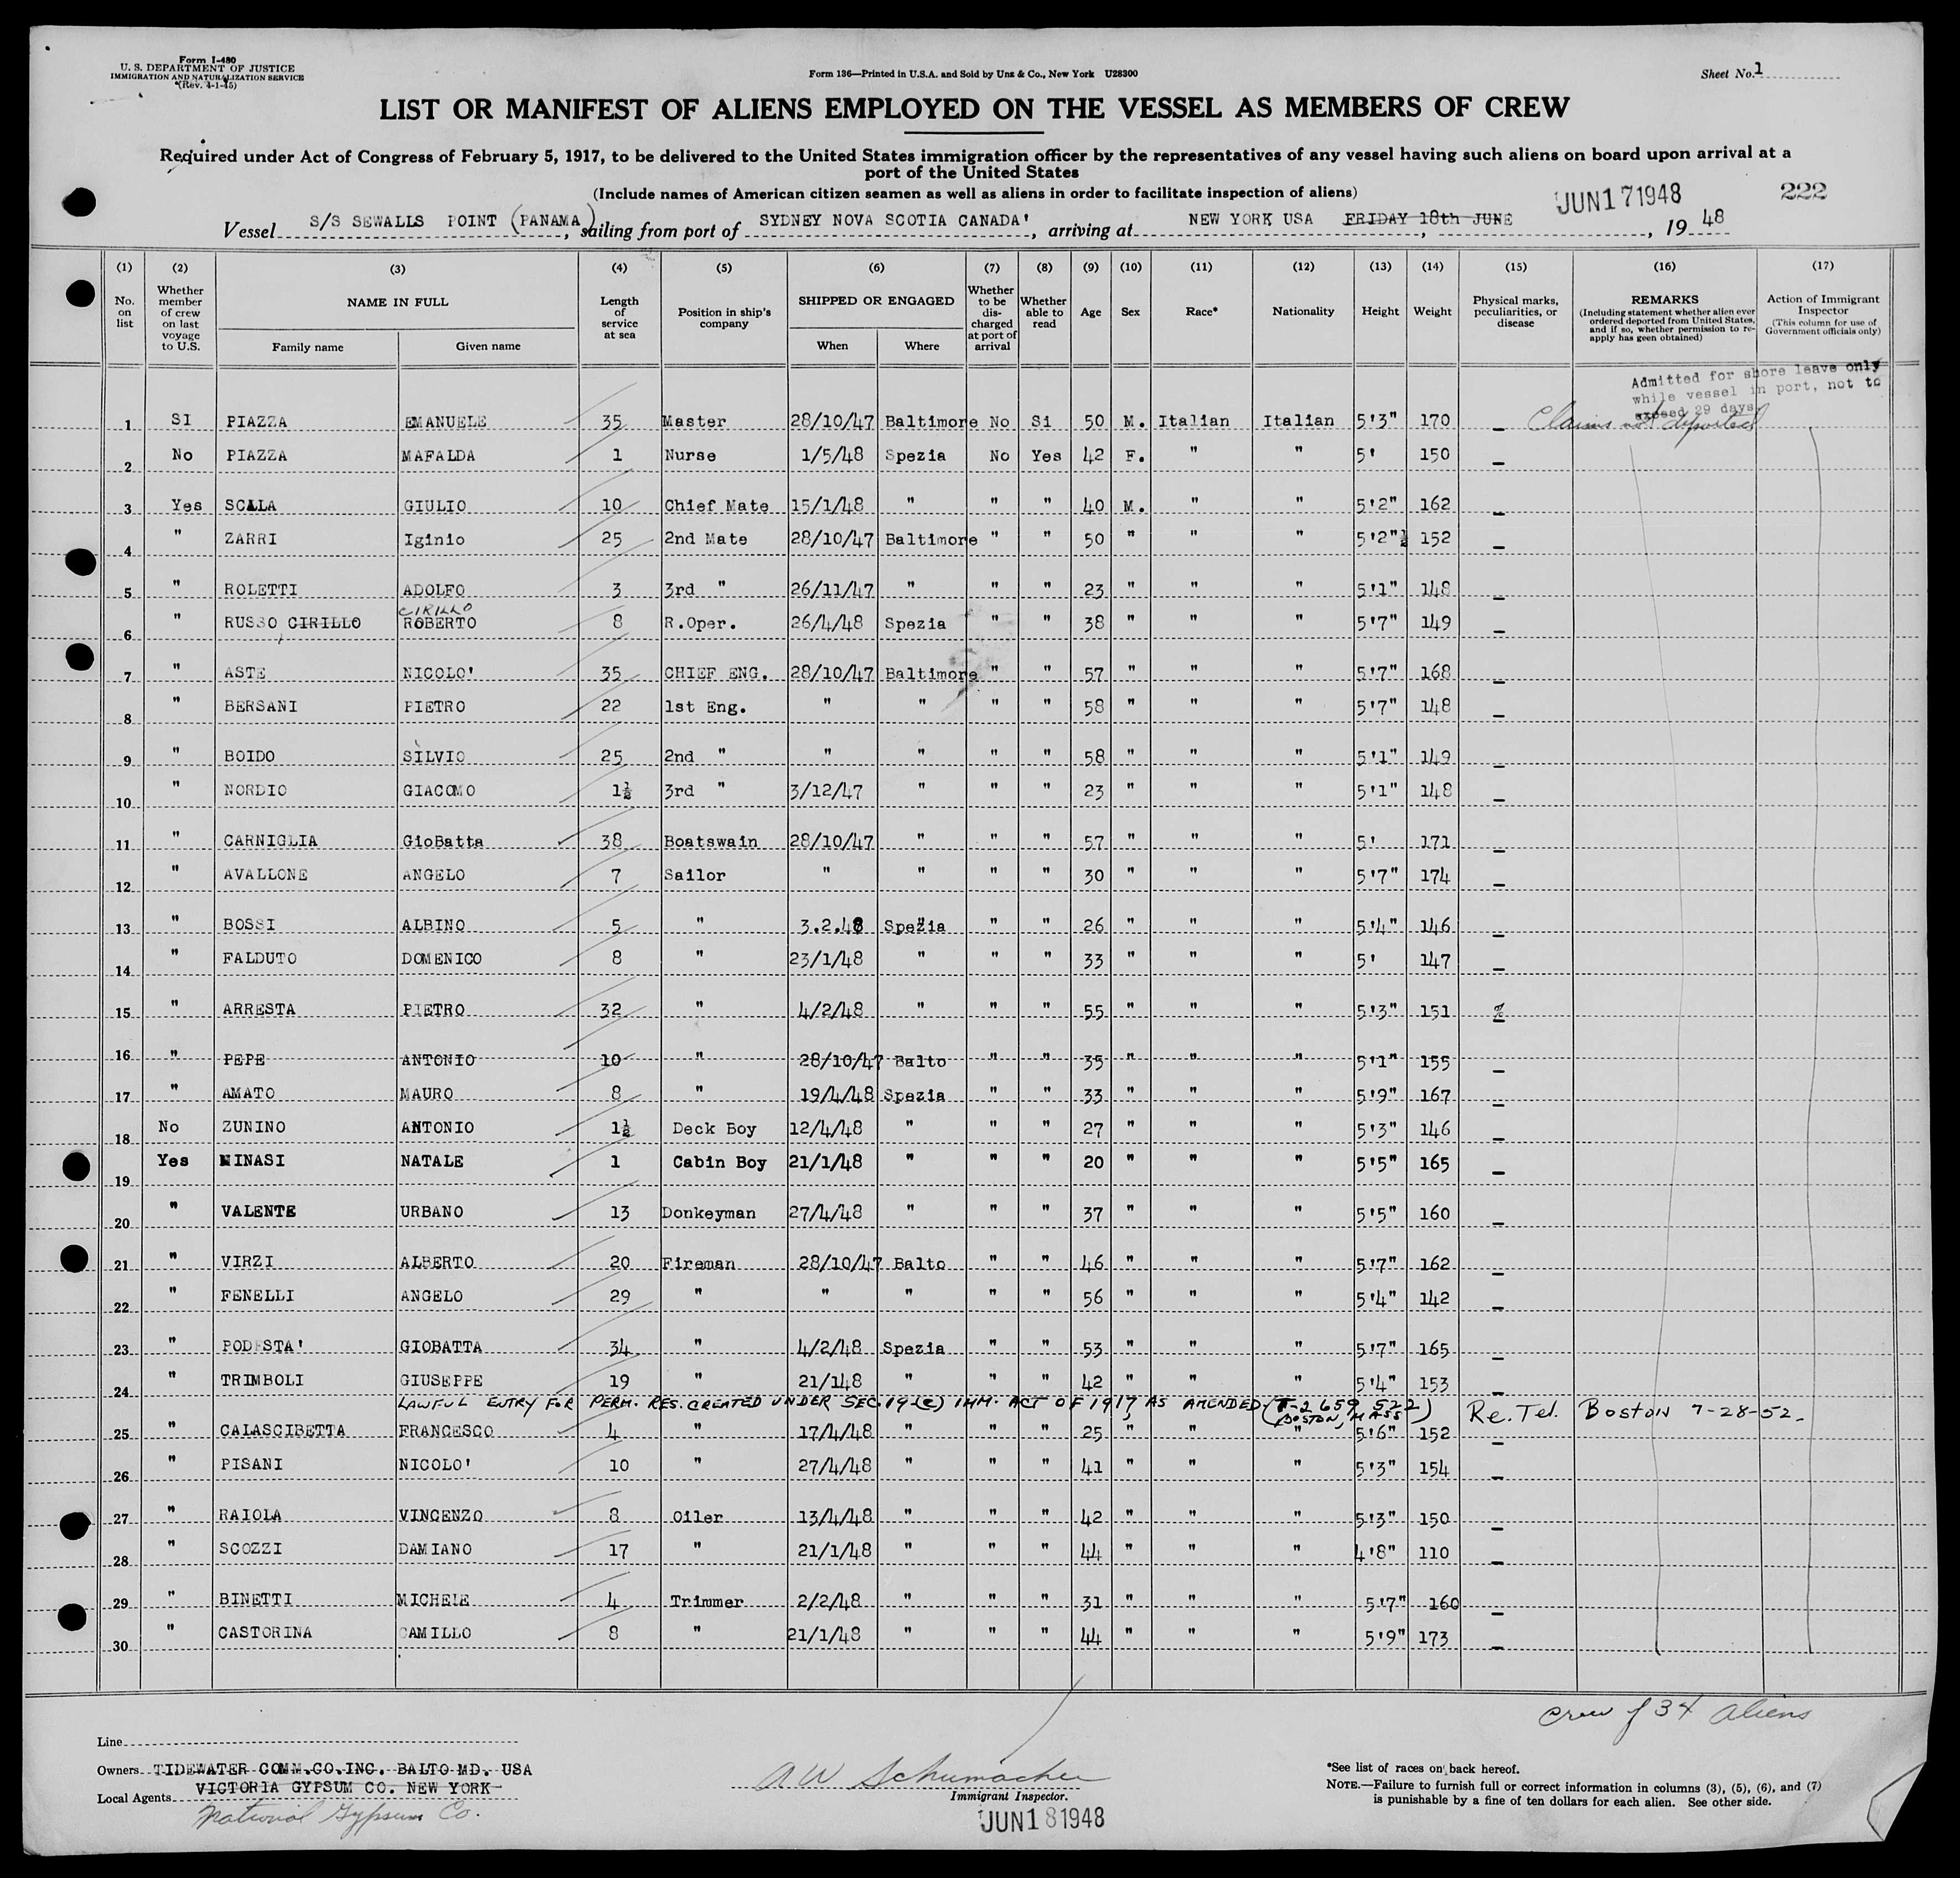 Form I-480
U. S. DEPARTMENT OF JUSTICE
IMMIGRATION AND NATURALIZATION SERVICE
(Rev. 4-1-45)
Form 136—Printed in U.S.A. and Sold by Unz & Co., New York U28300
Sheet No. 1
LIST OR MANIFEST OF ALIENS EMPLOYED ON THE VESSEL AS MEMBERS OF CREW
Required under Act of Congress of February 5, 1917, to be delivered to the United States immigration officer by the representatives of any vessel having such aliens on board upon arrival at a
port of the United States
(Include names of American citizen seamen as well as aliens in order to facilitate inspection of aliens)
JUN 17 1948
222
Vessel S/S SEWALLS POINT (PANAMA), sailing from port of SYDNEY NOVA SCOTIA CANADA', arriving at NEW YORK USA FRIDAY 18th JUNE, 19 48
(1) (2) (3) (4) (5) (6) (7) (8) (9) (10) (11) (12) (13) (14) (15) (16) (17)
No. on list
Whether member of crew on last voyage to U.S.
NAME IN FULL
Family name Given name
Length of service at sea
Position in ship's company
SHIPPED OR ENGAGED
When Where
Whether to be discharged at port of arrival
Whether able to read
Age
Sex
Race*
Nationality
Height
Weight
Physical marks, peculiarities, or disease
REMARKS
(Including statement whether alien ever ordered deported from United States, and if so, whether permission to re-apply has geen obtained)
Action of Immigrant Inspector
(This column for use of Government officials only)
Admitted for shore leave only
while vessel in port, not to
exceed 29 days
1 SI PIAZZA EMANUELE 35 Master 28/10/47 Baltimore No Si 50 M. Italian Italian 5'3" 170 – Claims not deported
2 No PIAZZA MAFALDA 1 Nurse 1/5/48 Spezia No Yes 42 F. " " 5' 150 –
3 Yes SCALLA GIULIO 10 Chief Mate 15/1/48 " " " 40 M. " " 5'2" 162 –
4 " ZARRI Iginio 25 2nd Mate 28/10/47 Baltimore " " 50 " " " 5'2"½ 152 –
5 " ROLETTI ADOLFO 3 3rd " 26/11/47 " " " 23 " " " 5'1" 148 –
CIRILLO
6 " RUSSO CIRILLO ROBERTO 8 R.Oper. 26/4/48 Spezia " " 38 " " " 5'7" 149 –
7 " ASTE NICOLO' 35 CHIEF ENG. 28/10/47 Baltimore " " 57 " " " 5'7" 168 –
8 " BERSANI PIETRO 22 1st Eng. " " " " 58 " " " 5'7" 148 –
9 " BOIDO SILVIO 25 2nd " " " " " 58 " " " 5'1" 149 –
10 " NORDIO GIACOMO 1½ 3rd " 3/12/47 " " " 23 " " " 5'1" 148 –
11 " CARNIGLIA GioBatta 38 Boatswain 28/10/47 " " " 57 " " " 5' 171 –
12 " AVALLONE ANGELO 7 Sailor " " " " 30 " " " 5'7" 174 –
13 " BOSSI ALBINO 5 " 3.2.48 Spezia " " 26 " " " 5'4" 146 –
14 " FALDUTO DOMENICO 8 " 23/1/48 " " " 33 " " " 5' 147 –
15 " ARRESTA PIETRO 32 " 4/2/48 " " " 55 " " " 5'3" 151 –
16 " PEPE ANTONIO 10 " 28/10/47 Balto " " 35 " " " 5'1" 155 –
17 " AMATO MAURO 8 " 19/4/48 Spezia " " 33 " " " 5'9" 167 –
18 No ZUNINO ANTONIO 1½ Deck Boy 12/4/48 " " " 27 " " " 5'3" 146 –
19 Yes MINASI NATALE 1 Cabin Boy 21/1/48 " " " 20 " " " 5'5" 165 –
20 " VALENTE URBANO 13 Donkeyman 27/4/48 " " " 37 " " " 5'5" 160 –
21 " VIRZI ALBERTO 20 Fireman 28/10/47 Balto " " 46 " " " 5'7" 162 –
22 " FENELLI ANGELO 29 " " " " " 56 " " " 5'4" 142 –
23 " PODESTA' GIOBATTA 34 " 4/2/48 Spezia " " 53 " " " 5'7" 165 –
24 " TRIMBOLI GIUSEPPE 19 " 21/148 " " " 42 " " " 5'4" 153 –
LAWFUL ENTRY FOR PERM. RES. CREATED UNDER SEC. 19(c) IMM. ACT OF 1917, AS AMENDED (T-2 659 522) Re. Tel. Boston 7-28-52.
BOSTON, MASS
25 " CALASCIBETTA FRANCESCO 4 " 17/4/48 " " " 25 " " " 5'6" 152 –
26 " PISANI NICOLO' 10 " 27/4/48 " " " 41 " " " 5'3" 154 –
27 " RAIOLA VINCENZO 8 Oiler 13/4/48 " " " 42 " " " 5'3" 150 –
28 " SCOZZI DAMIANO 17 " 21/1/48 " " " 44 " " " 4'8" 110 –
29 " BINETTI MICHELE 4 Trimmer 2/2/48 " " " 31 " " " 5'7" 160 –
30 " CASTORINA CAMILLO 8 " 21/1/48 " " " 44 " " " 5'9" 173 –
Crew of 34 aliens
Line
Owners TIDEWATER COMM.CO.INC. BALTO MD. USA
VICTORIA GYPSUM CO. NEW YORK
Local Agents
National Gypsum Co.
A W Schumacher
Immigrant Inspector.
JUN 18 1948
*See list of races on back hereof.
NOTE.—Failure to furnish full or correct information in columns (3), (5), (6), and (7)
is punishable by a fine of ten dollars for each alien. See other side.